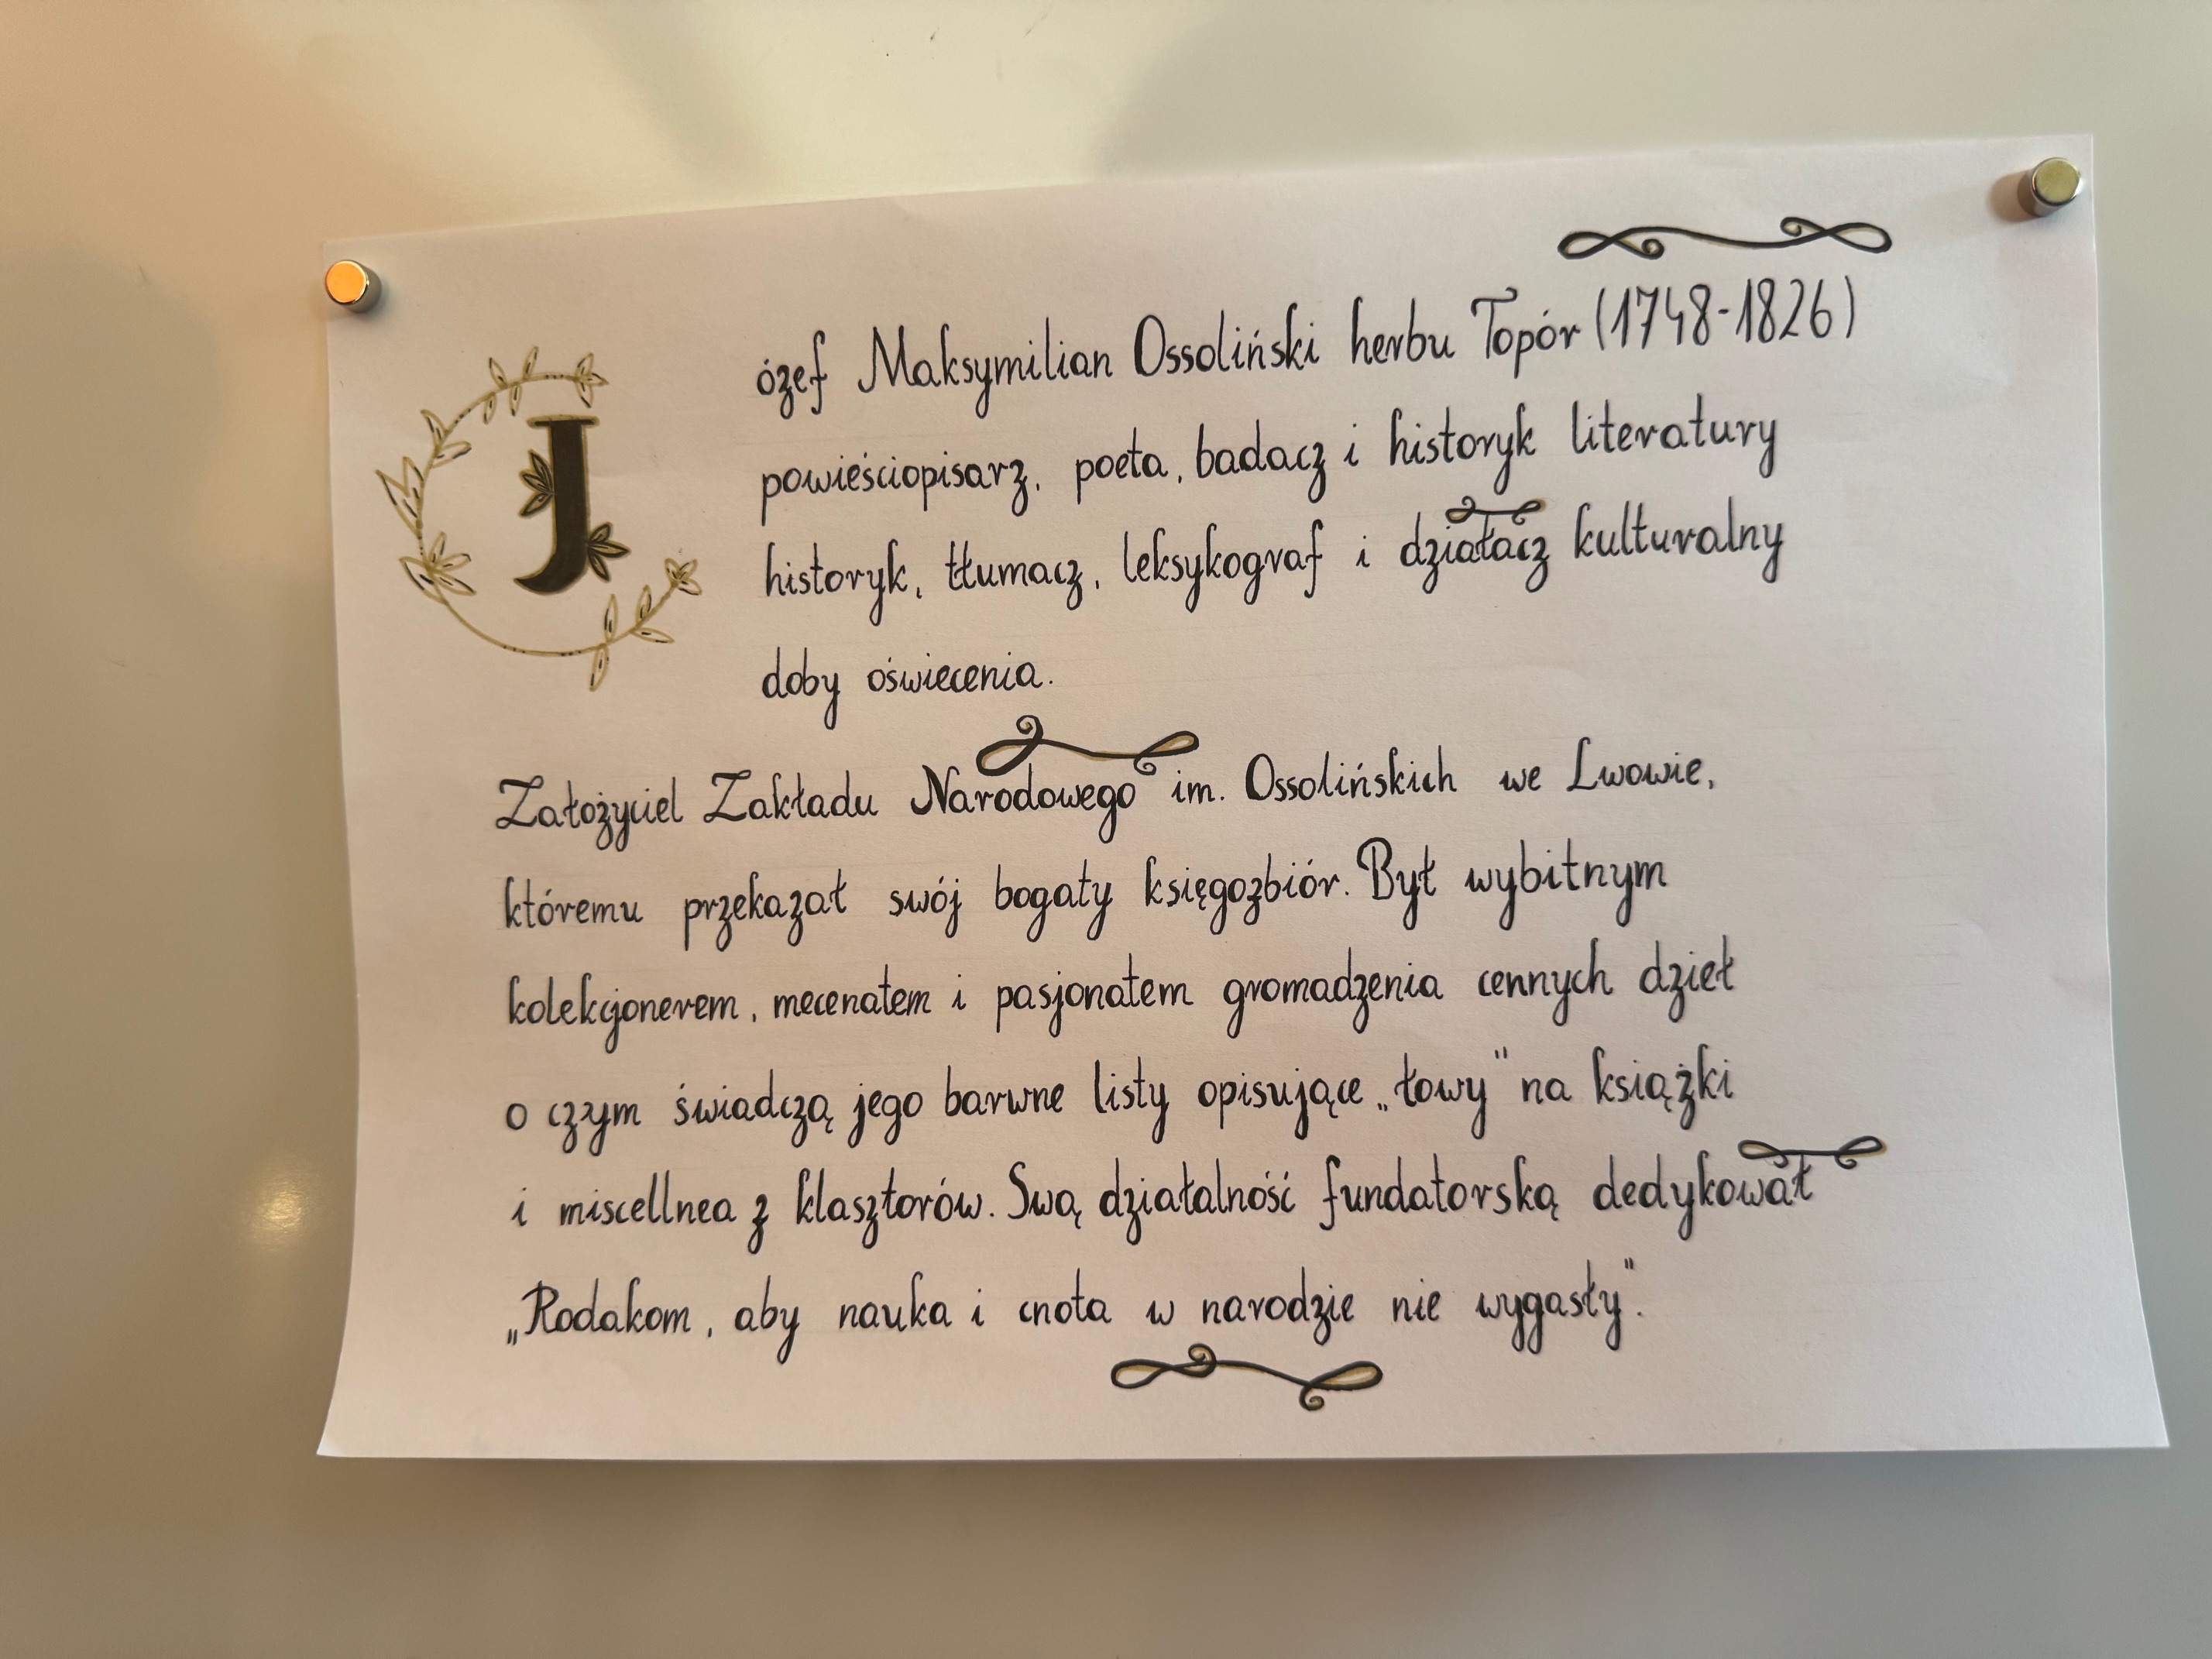 Józef Maksymilian Ossoliński herbu Topór (1748-1826)
powieściopisarz, poeta, badacz i historyk literatury
historyk, tłumacz, leksykograf i działacz kulturalny
doby oświecenia.
Założyciel Zakładu Narodowego im. Ossolińskich we Lwowie,
któremu przekazał swój bogaty księgozbiór. Był wybitnym
kolekcjonerem, mecenatem i pasjonatem gromadzenia cennych dzieł
o czym świadczą jego barwne listy opisujące „łowy" na książki
i miscellnea z klasztorów. Swą działalność fundatorską dedykował
„Rodakom, aby nauka i cnota w narodzie nie wygasły".